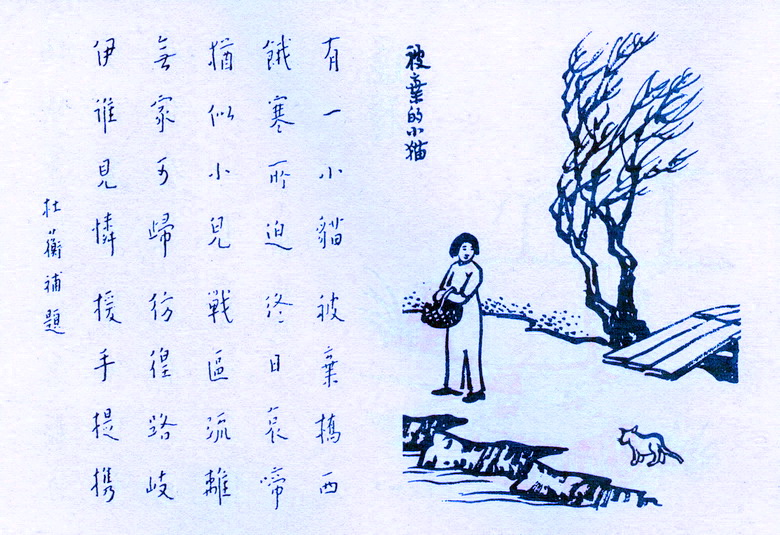 被棄的小猫
有一小貓被棄橋西
餓寒所迫終日哀啼
猶似小兒戦區流離
無家可歸彷徨路岐
伊誰見憐援手提携
杜蘅補題